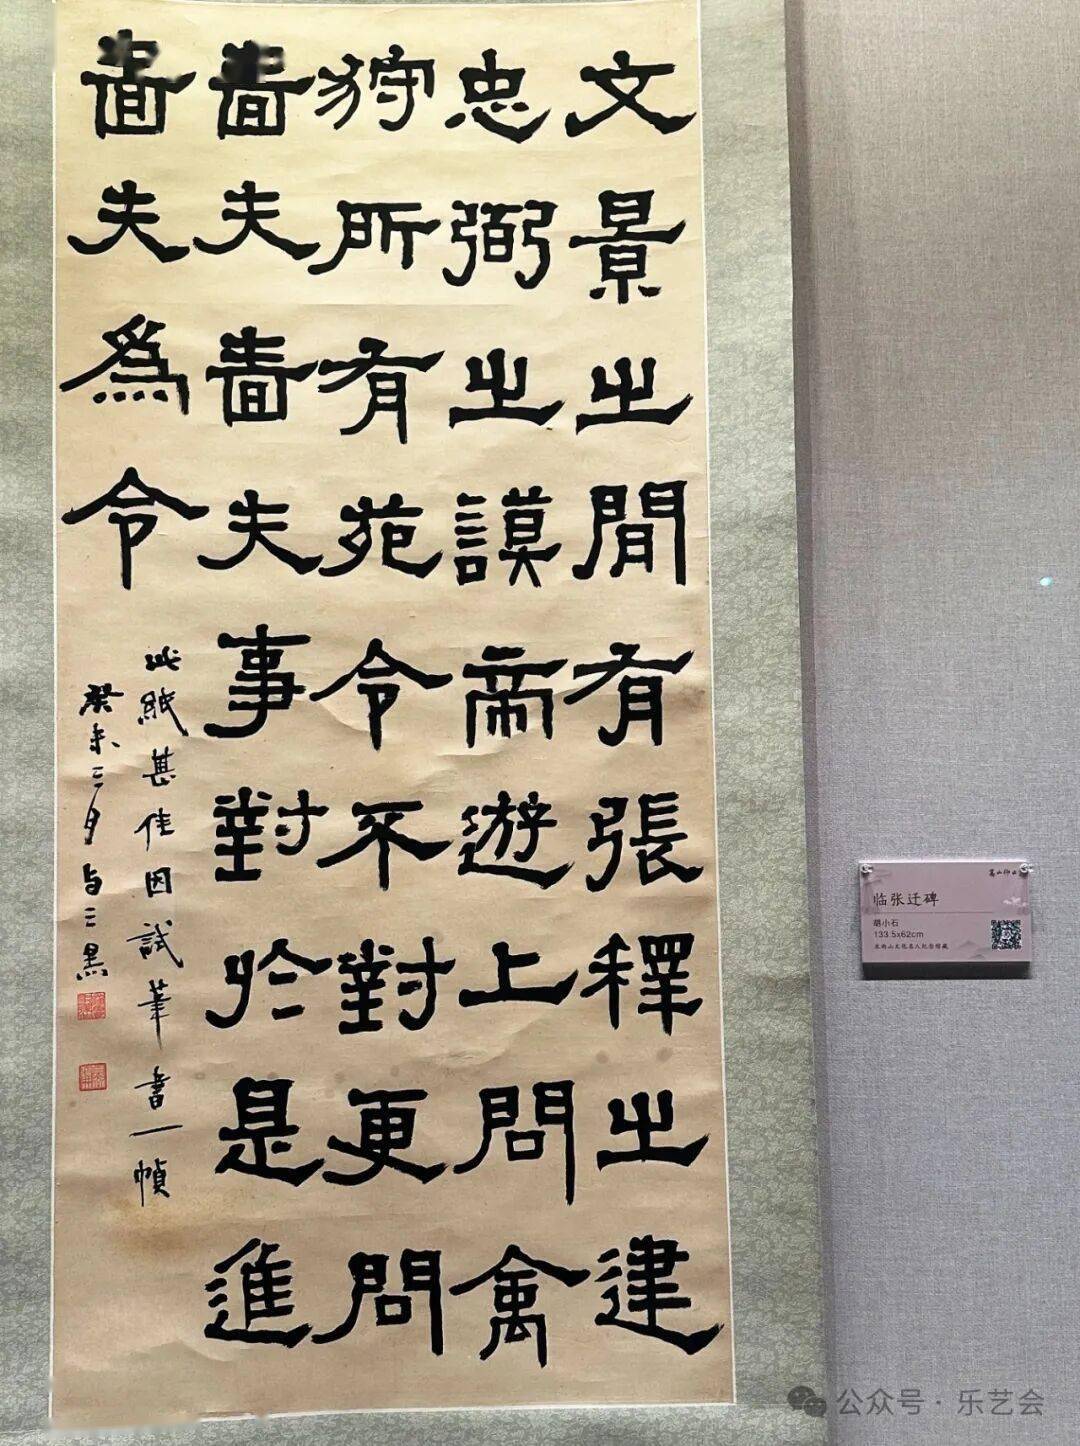 文景之間有張釋之建
忠弼之謨帝遊上問禽
狩所有苑令不對更問
嗇夫嗇夫事對於是進
嗇夫為令
此紙甚佳因試筆書一幀
癸未三月
临张迁碑
胡小石
133.5x62cm
公众号·乐艺会